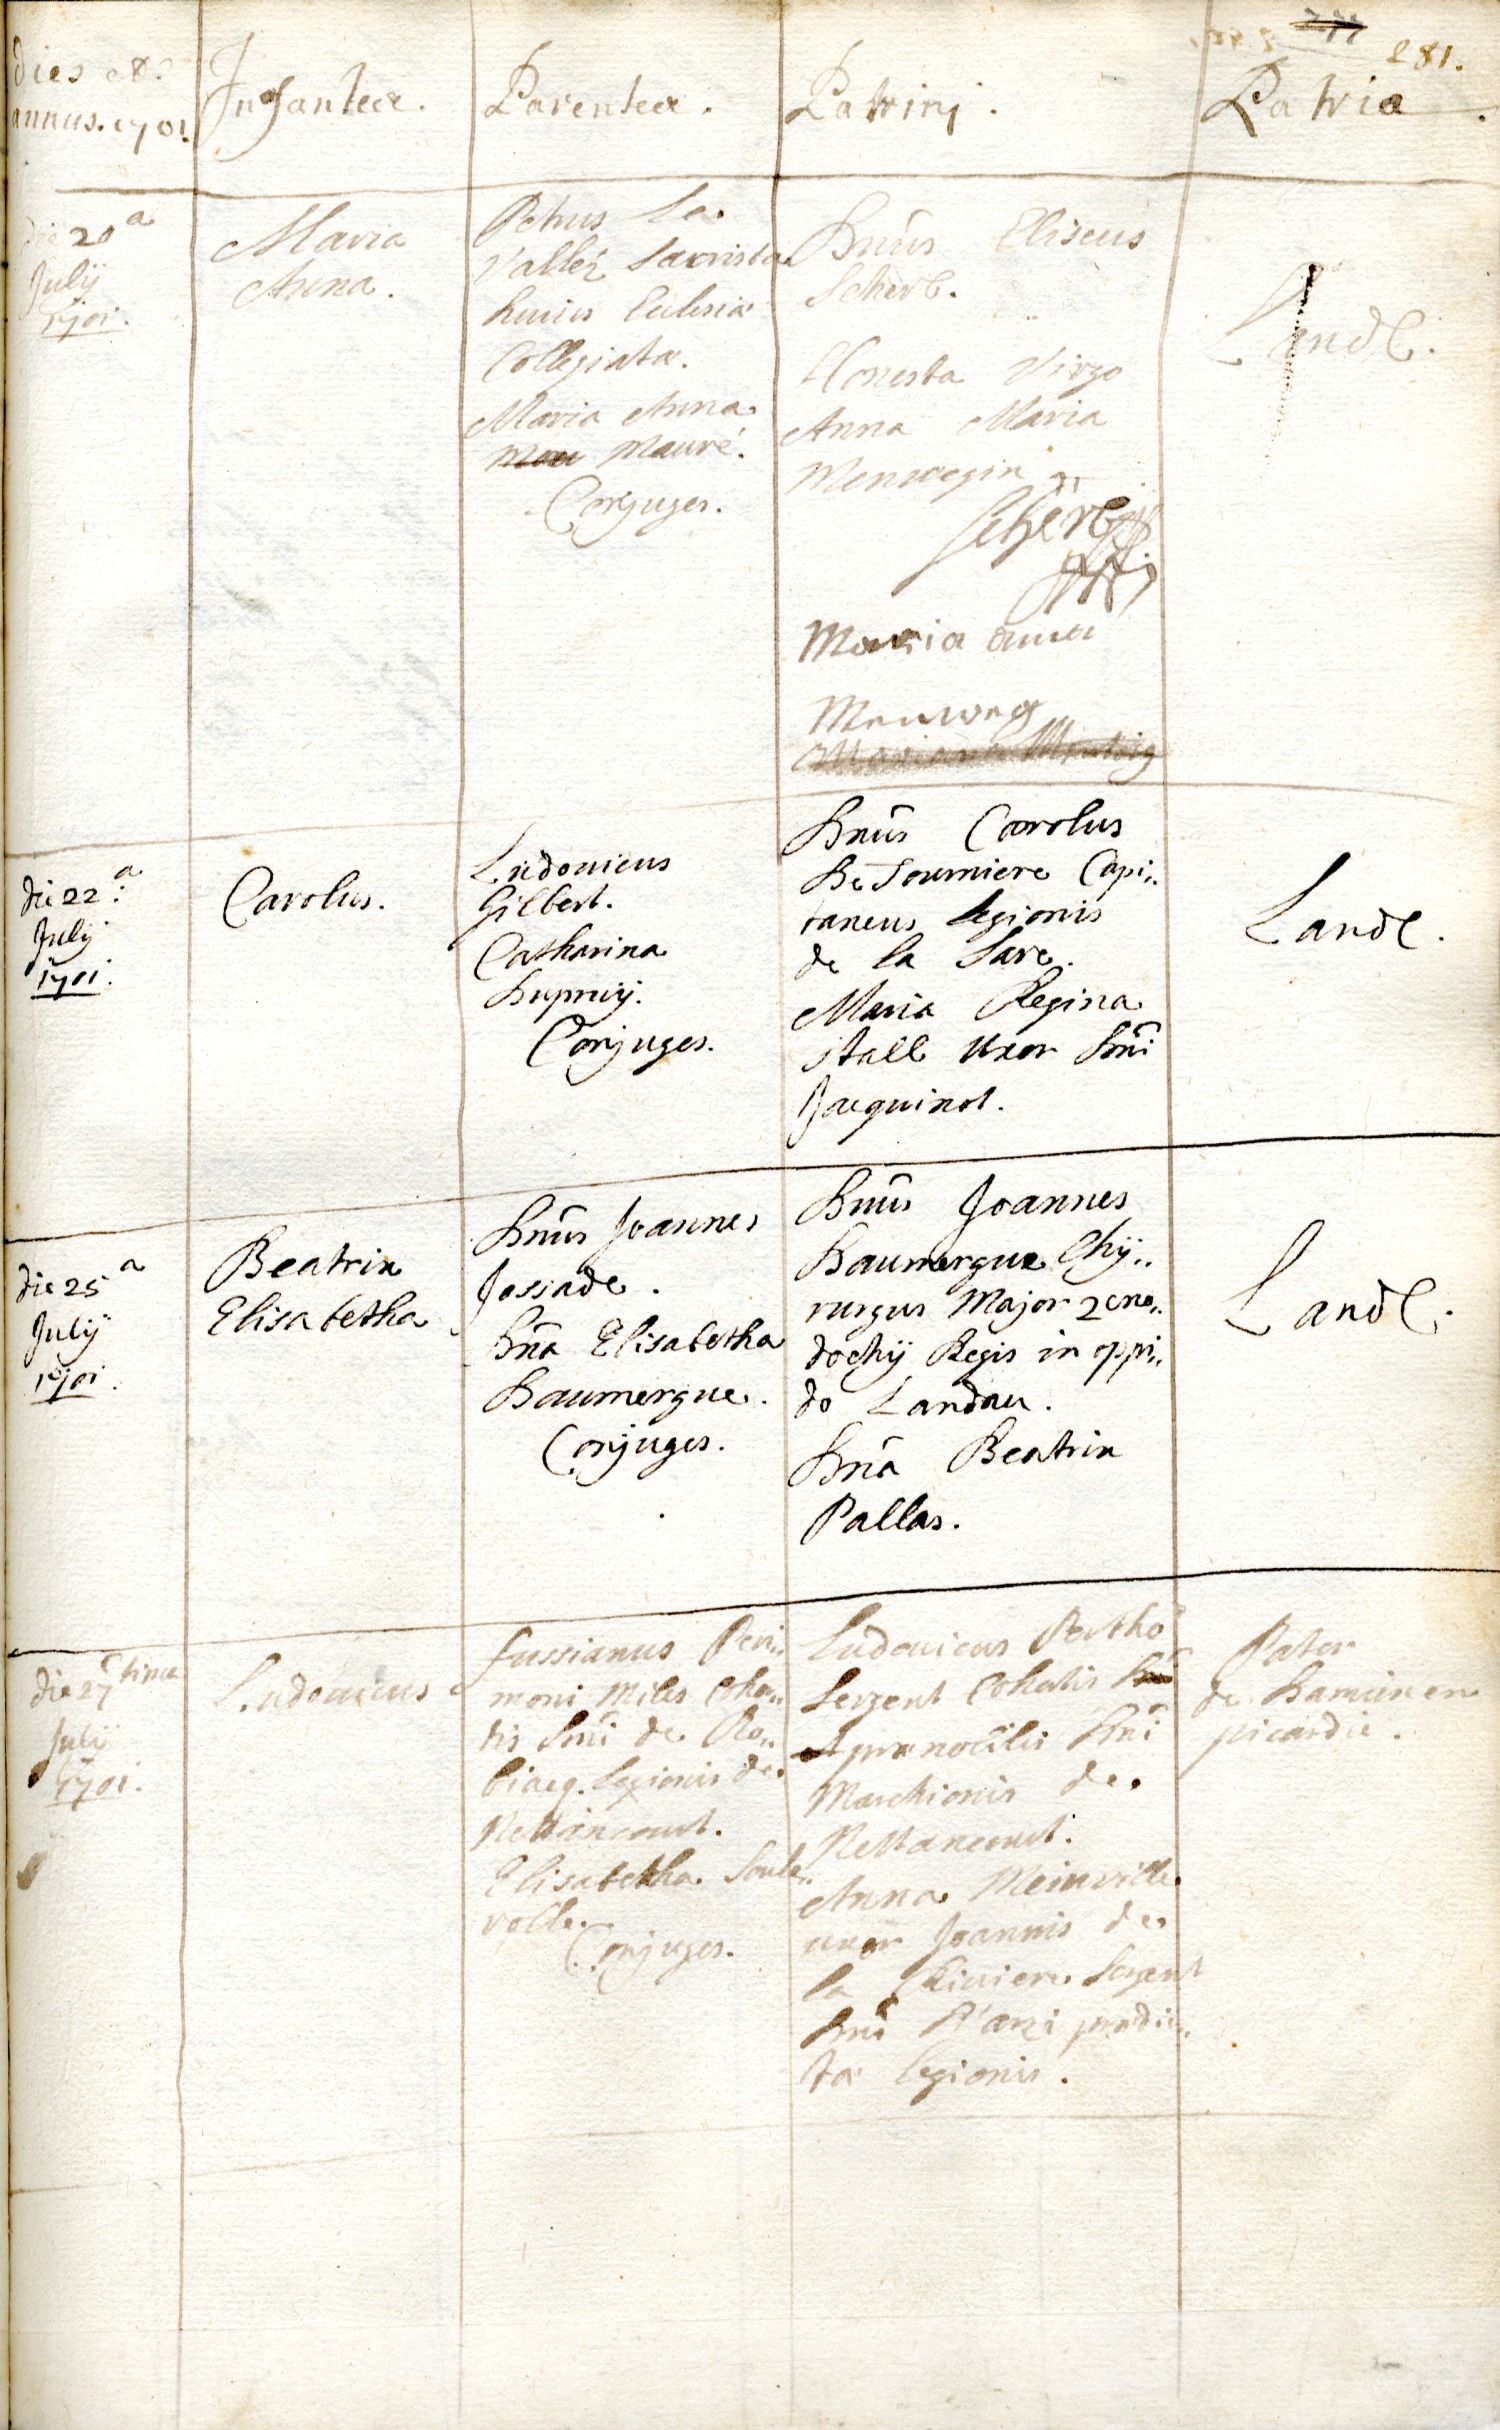 281.
dies et
annus. 1701.
Infantes.
Parentes.
Patrinj.
Patria.
die 20a
Julij
1701.
Maria
Anna.
Petrus La
Vallée Sacrista
huius Ecclesiæ
Collegiatæ.
Maria Anna
Mau Mauré.
Conjuges.
Dnûs Eliseus
Scherb.
Honesta Virgo
Anna Maria
Menwegin
Scherb
Maria anna
Menweg
Landl.
die 22a
Julij
1701.
Carolus.
Ludovicus
Gilbert.
Catharina
Dupruij.
Conjuges.
Dnûs Carolus
De Soumiere Capi„
taneus legionis
de la Sare.
Maria Regina
Stall Uxor Dnî
Jacquinot.
Landl.
die 25a
Julij
1701.
Beatrix
Elisabetha
Dnûs Joannes
Jossade.
Dnâ Elisabetha
Daumergue.
Conjuges.
Dnûs Joannes
Daumergue Chij„
rurgus Major Xeno„
dochij Regis in oppi„
do Landau.
Dnâ Beatrix
Pallas.
Landl.
die 27tima
Julij
1701.
Ludovicus
fussianus Peri„
moni Miles Coho„
tis Dnî de Ro„
biacq. Legionis de
Nettancourt.
Elisabetha Soule„
volle.
Conjuges.
Ludovicus Pertho
Sergent Cohotis
prænobilis Dnî
Marchionis de
Nettancourt.
Anna Meinville
uxor Joannis de
la Riviere Sergent
Dnî D'anzi prædic„
tæ legionis.
Pater
de Damiin en
picardie.